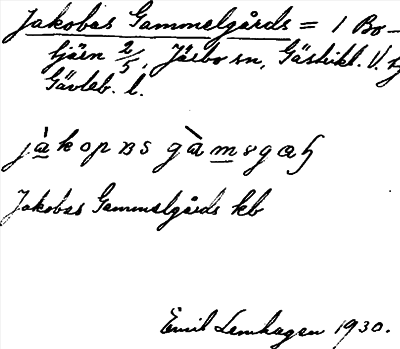 Jakobas Gammelgårds = 1 Bo-
tjärn 2/5, Järbo sn, Gästrikl. V.
Gävleb. l.
jàkopas gàmsgaɧ
Jakobas Gammelgårds kb
Emil Lemhagen 1930.